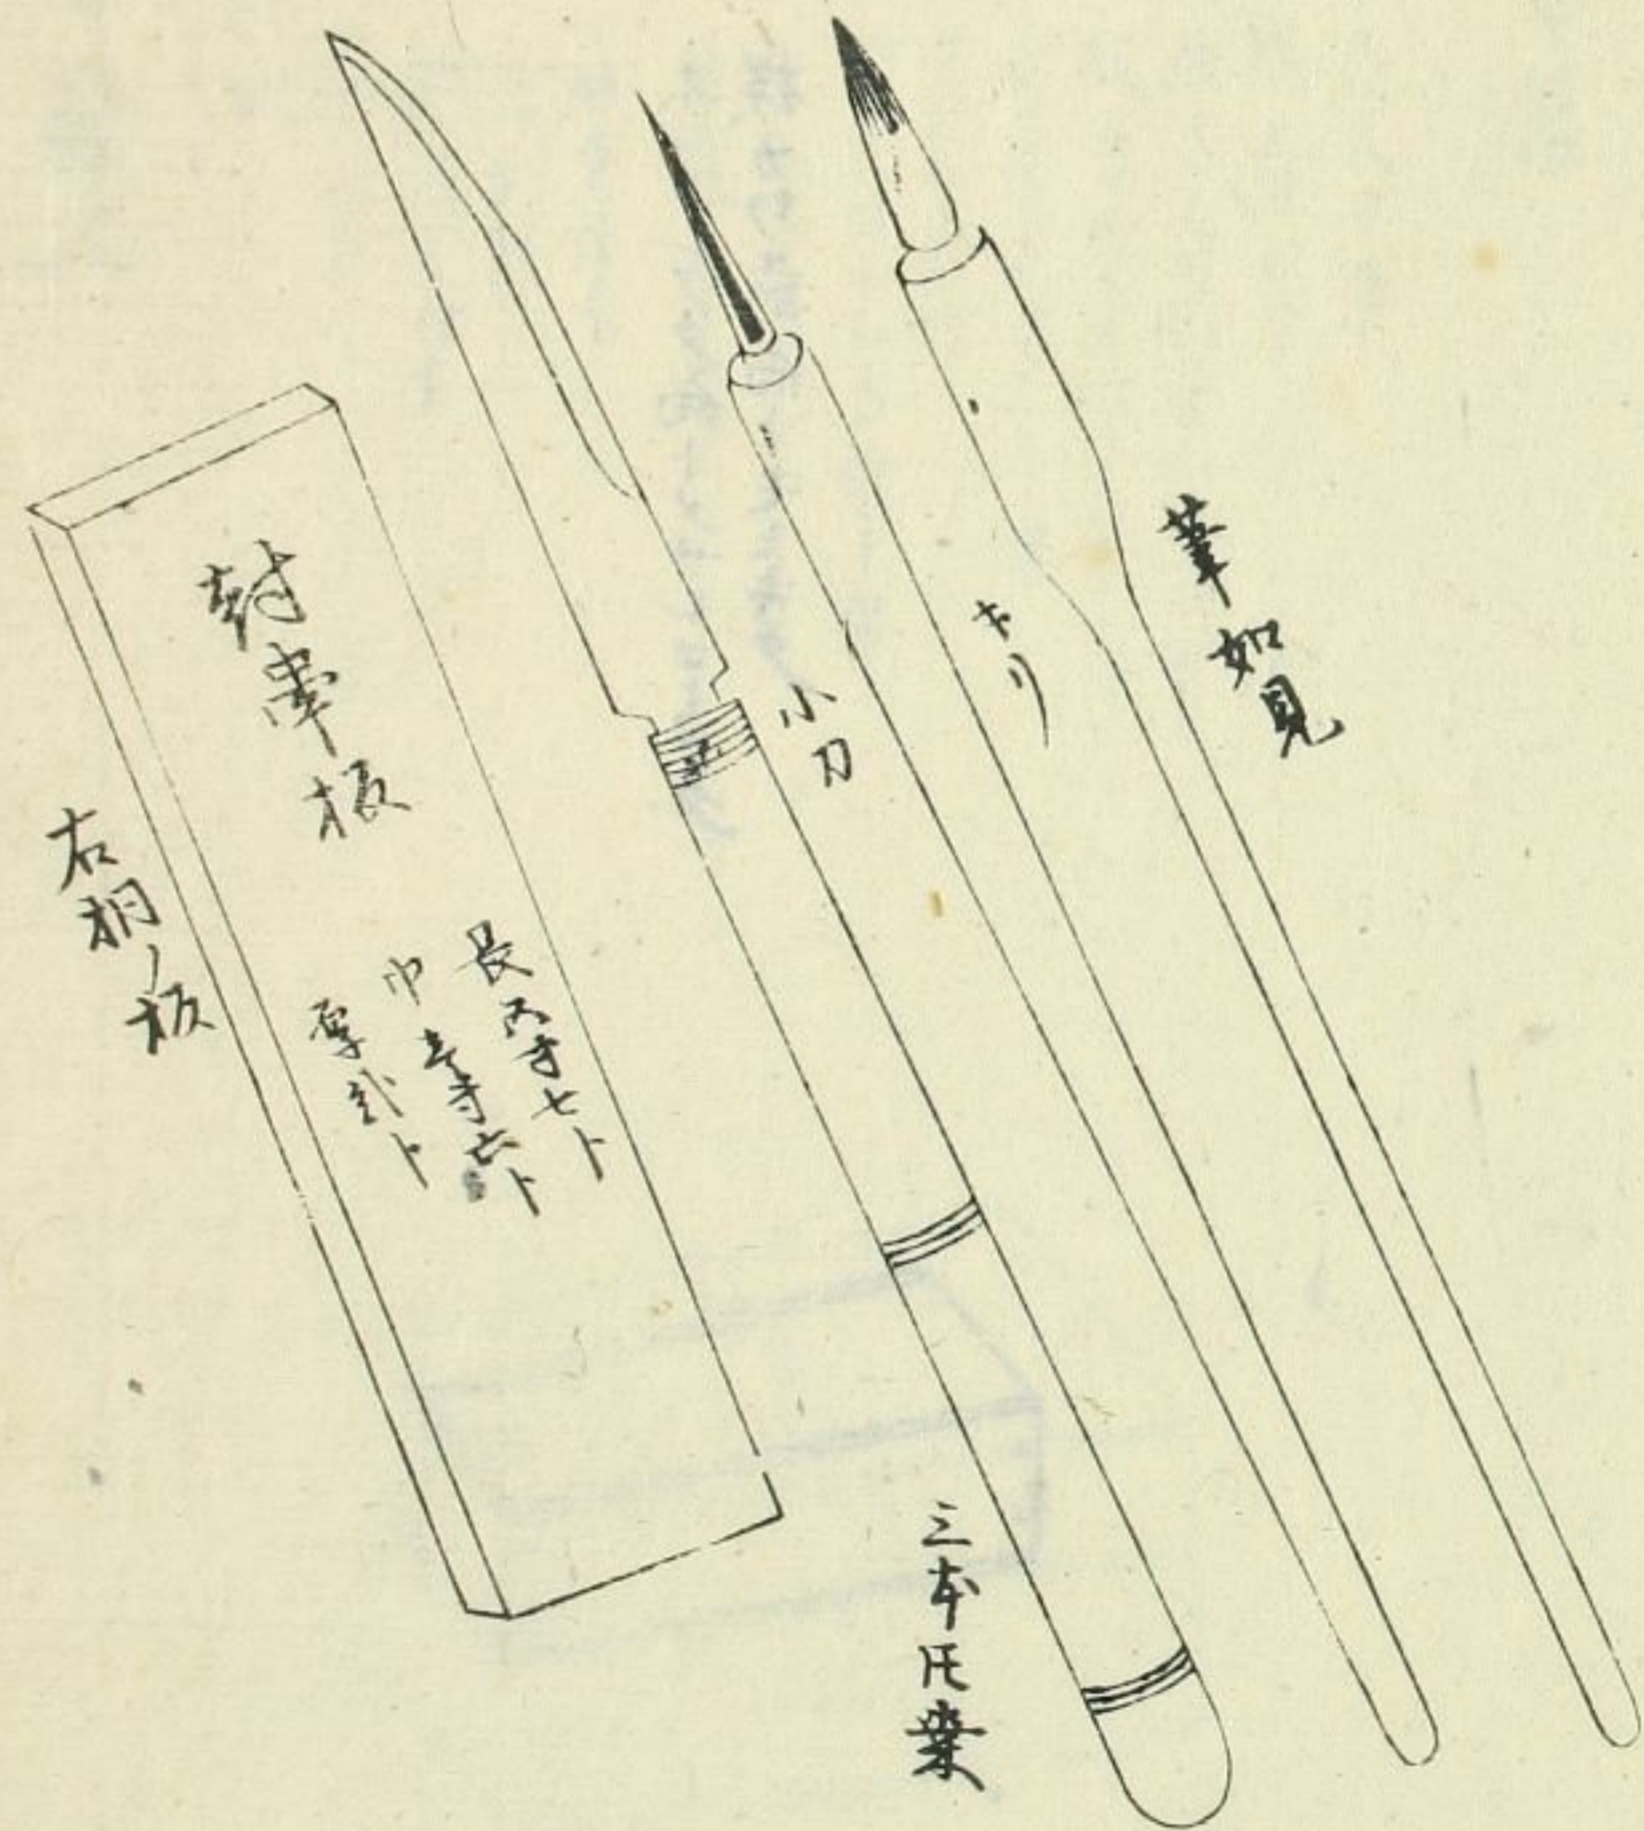 筆如見
キリ
小刀
三本圧柴
封串板
長五寸七卜
巾壱寸六卜
厚弐卜
右桐ノ板